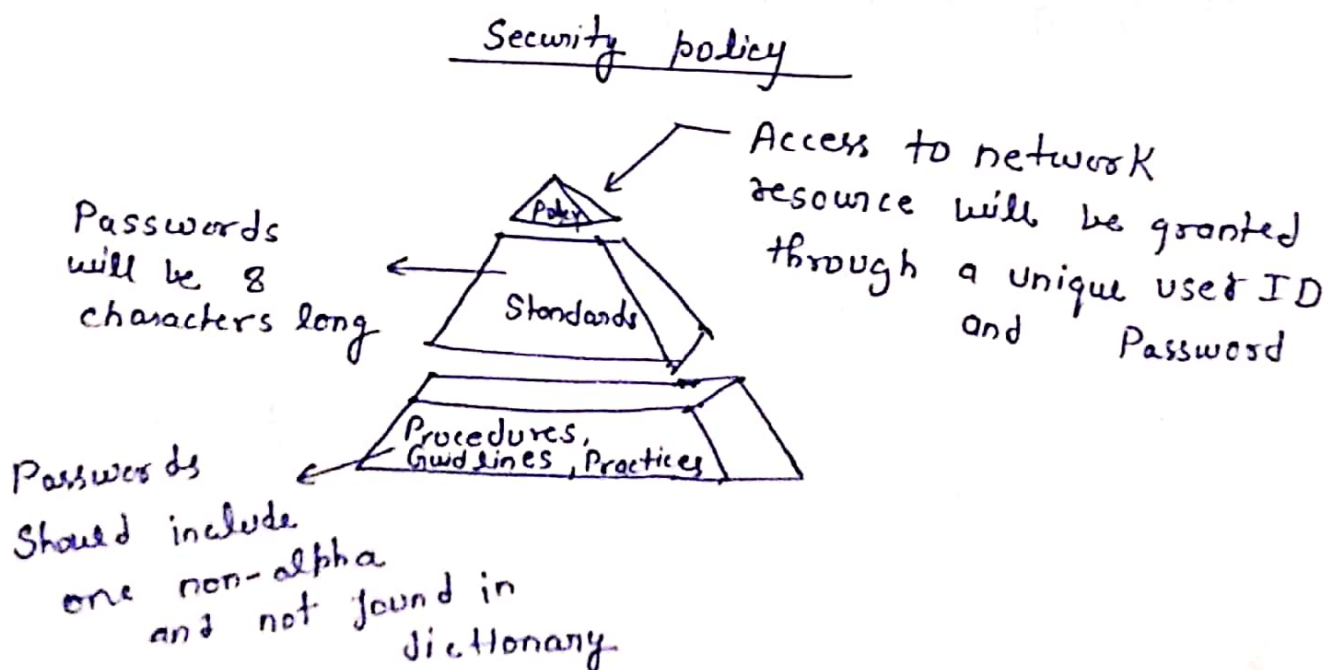 Security policy
Access to network
resource will be granted
through a unique user ID
and Password
Policy
Passwords
will be 8
characters long
Standards
Procedures,
Guidlines, Practices
Passwords
Should include
one non-alpha
and not found in
dictionary